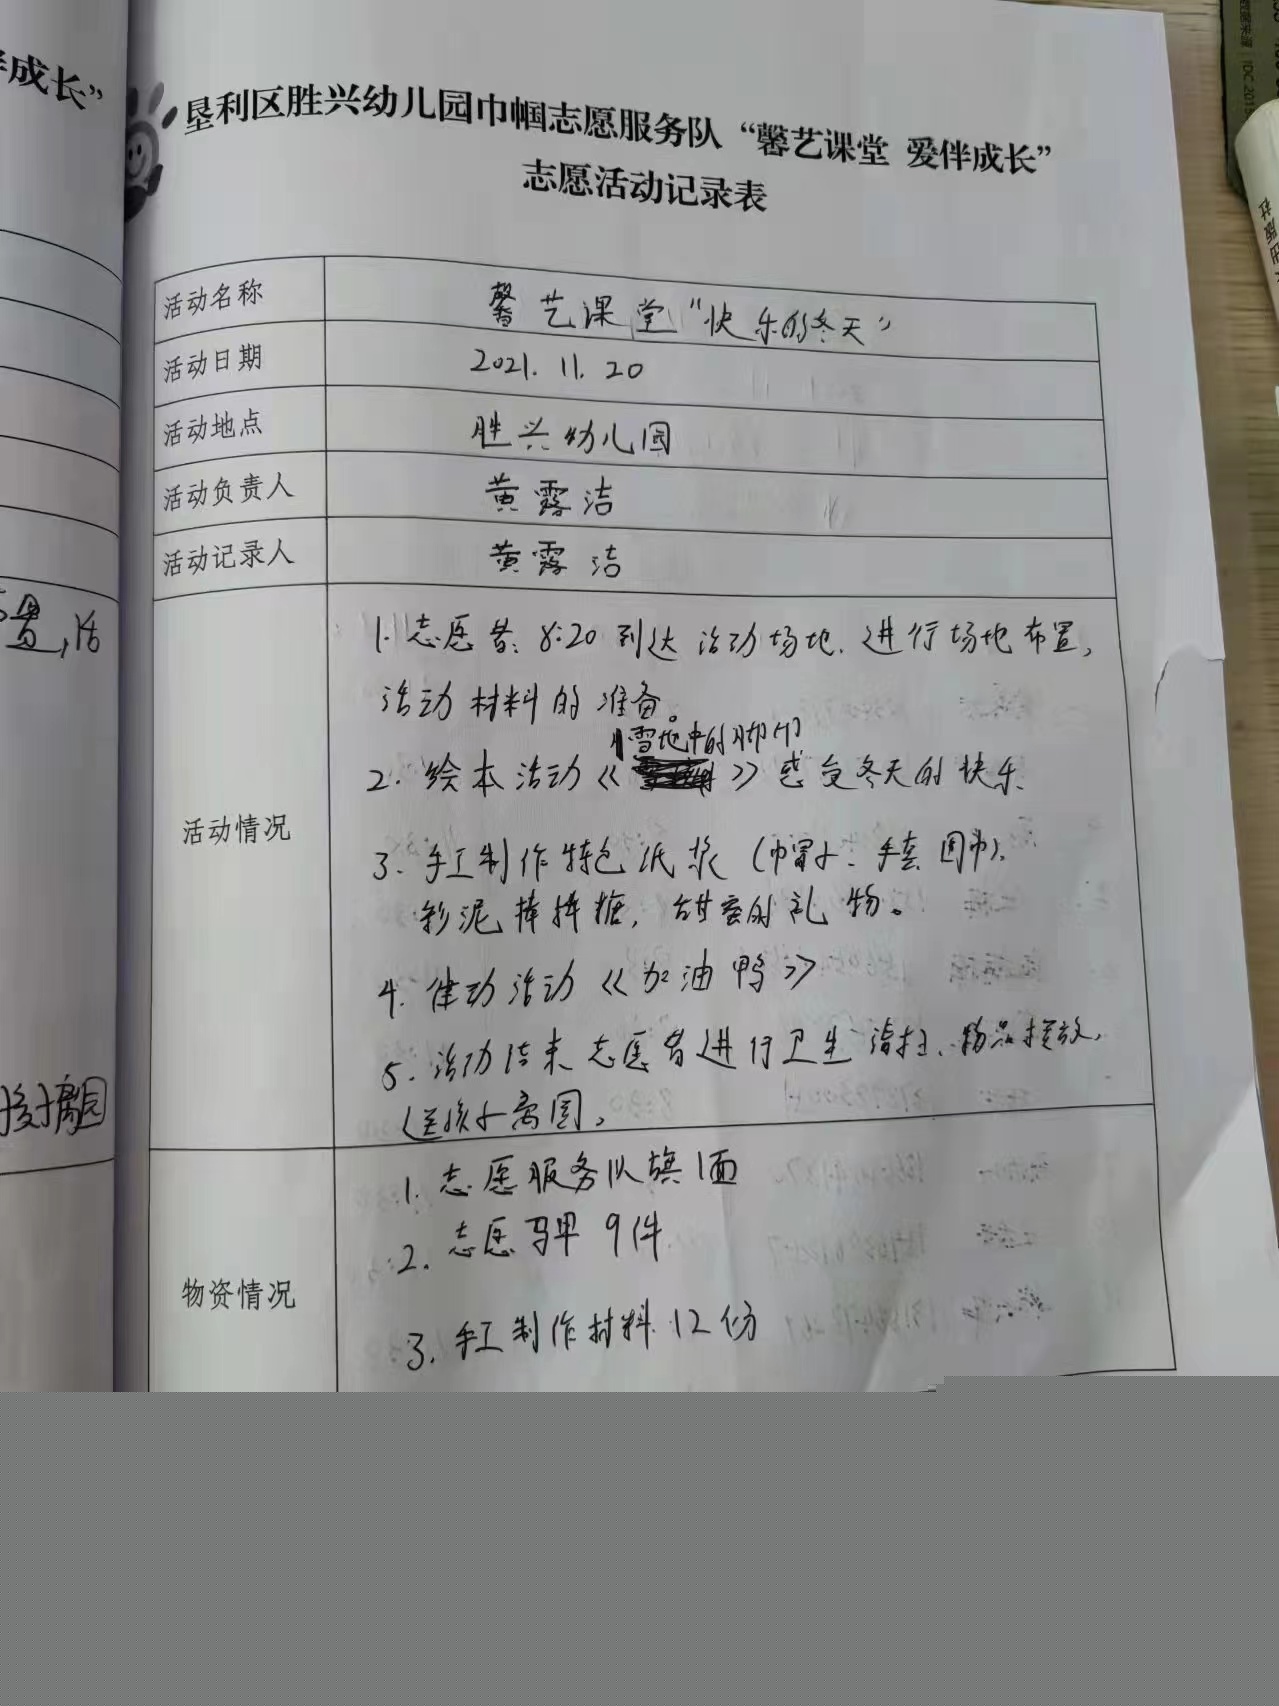 伴成长”
垦利区胜兴幼儿园巾帼志愿服务队“馨艺课堂 爱伴成长”
志愿活动记录表
活动名称 馨艺课堂“快乐的冬天”
活动日期 2021.11.20
活动地点 胜兴幼儿园
活动负责人 黄露洁
活动记录人 黄露洁
活动情况
1.志愿者:8:20到达活动场地.进行场地布置,
活动材料的准备。
雪地中的脚印
2.绘本活动《》感受冬天的快乐.
3.手工制作特色纸浆(帽子、手套 围巾).
彩泥棒棒糖,甜蜜的礼物。
4.律动活动《加油鸭》
5.活动结束志愿者进行卫生清扫、物品摆放,
送孩子离园。
物资情况
1.志愿服务队旗1面
2.志愿马甲9件
3.手工制作材料12份
置,活
孩子离园
版社